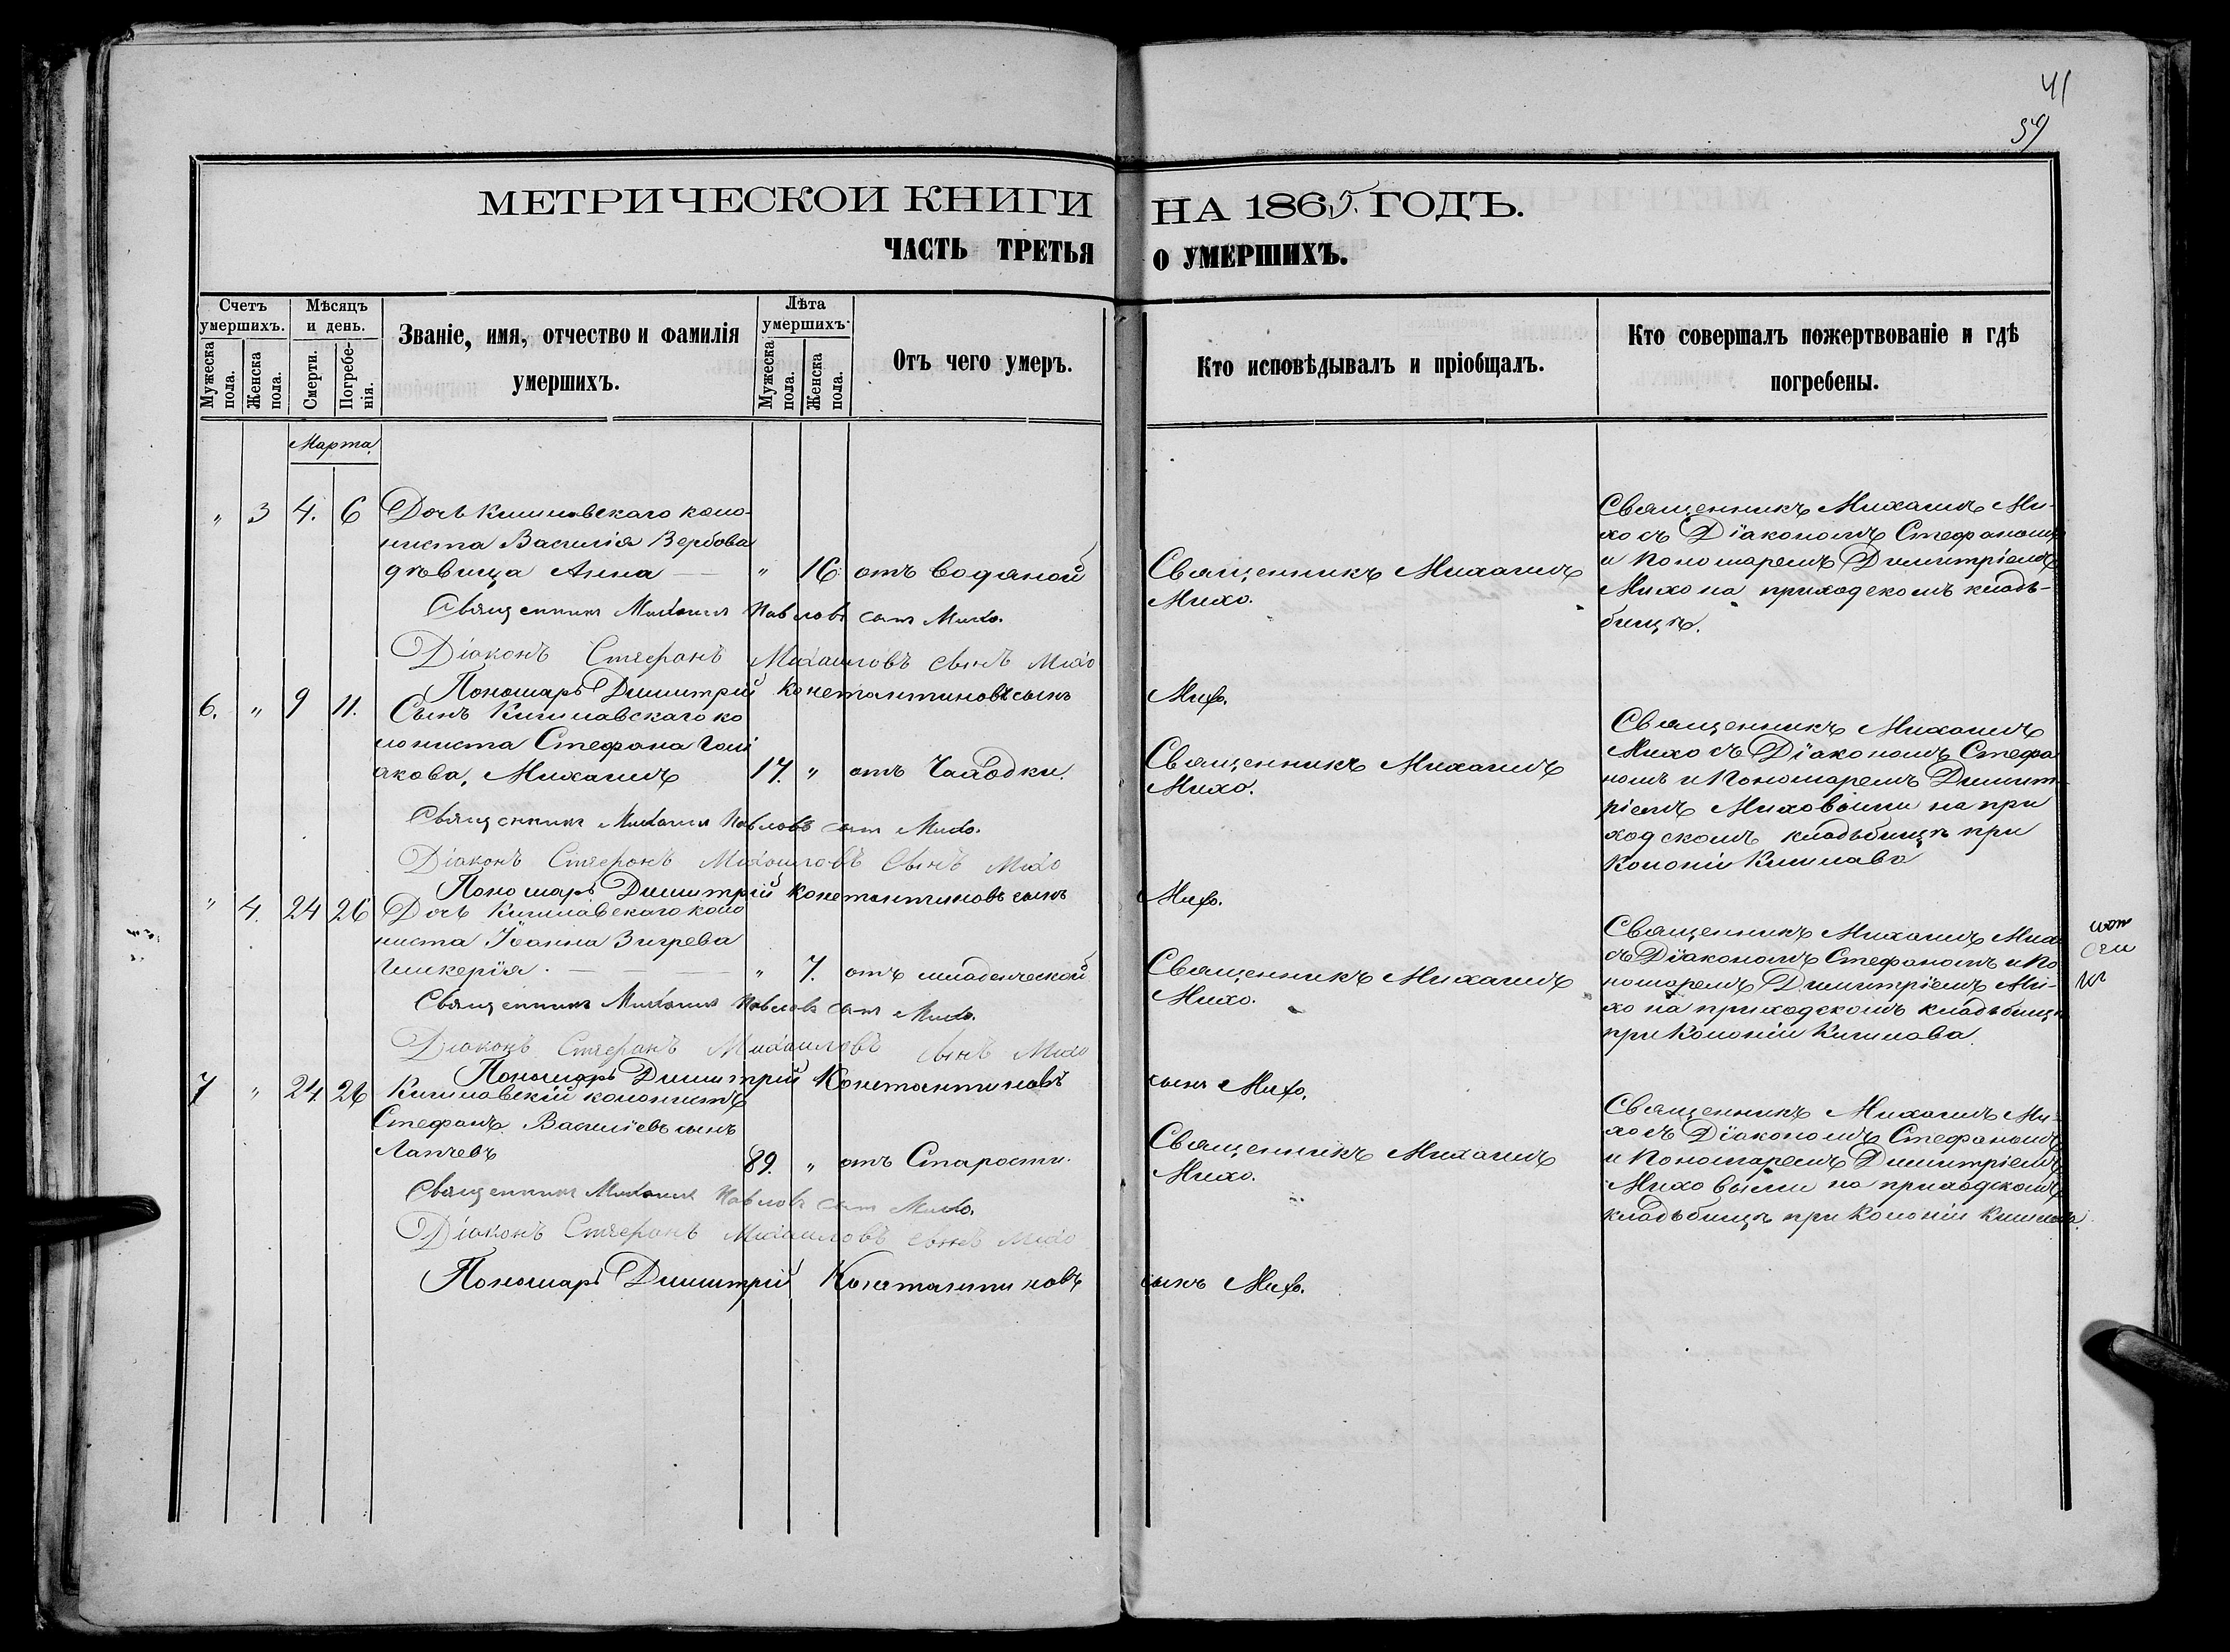 41
59
МЕТРИЧЕСКОИ КНИГИ НА 1865. ГОДЪ.
ЧАСТЬ ТРЕТЬЯ О УМЕРШИХЪ.
Счетъ умершихъ.
Мужеска пола.
Женска пола.
Мѣсяцъ и день.
Смерти.
Погребенія.
Званіе, имя, отчество и фамилія
умершихъ.
Лѣта умершихъ.
Мужеска пола.
Женска пола.
Отъ чего умеръ.
Кто исповѣдывалъ и пріобщалъ.
Кто совершалъ пожертвованіе и гдѣ
погребены.
Марта.
" 3 4. 6 Дочь Кишлавскаго коло-
ниста Василія Вербова
дѣвица Анна — " 16 отъ водяной
Священникъ Михаилъ
Михо.
Священникъ Михаилъ Ми-
хо съ Діакономъ Стефаномъ
и Пономаремъ Димитріемъ
Михо на приходскомъ кладь-
бищѣ.
Священникъ Михаилъ Павловъ сынъ Михо.
Діаконъ Стефанъ Михаиловъ сынъ Михо
Пономарь Димитрій Константиновъ сынъ Михо.
6. " 9 11. Сынъ Кишлавскаго ко
лониста Стефана
акова, Михаилъ 17. " отъ Чаходки.
Священникъ Михаилъ
Михо.
Священникъ Михаилъ
Михо съ Діакономъ Стефа
номъ и Пономаремъ Димит-
ріемъ Миховыми на при
ходскомъ кладьбищѣ при
Колоніи Кишлава
Священникъ Михаилъ Павловъ сынъ Михо.
Діаконъ Стефанъ Михаиловъ Сынъ Михо
Пономарь Димитрій Константиновъ сынъ Михо.
" 4. 24 26 Дочь Кишлавскаго коло
ниста Іоанна Зигрева
Гликерія. — " 7. отъ младенческой
Священникъ Михаилъ
Михо.
Священникъ Михаилъ Михо
съ Діакономъ Стефаномъ и По
номаремъ Димитріемъ Ми-
хо на приходскомъ кладьбищѣ
при Колоніи Кишлава.
Священникъ Михаилъ Павловъ сынъ Михо.
Діаконъ Стефанъ Михаиловъ сынъ Михо
Пономарь Димитрій Константиновъ сынъ Михо.
7 " 24. 26 Кишлавскій колонистъ
Стефанъ Василіевъ сынъ
Лапчевъ 89. " отъ Старости.
Священникъ Михаилъ
Михо.
Священникъ Михаилъ Ми-
хо съ Діакономъ Стефаномъ
и Пономаремъ Димитріемъ
Михо выми на приходскомъ
кладьбищѣ при Колоніи Кишлава.
Священникъ Михаилъ Павловъ сынъ Михо.
Діаконъ Стефанъ Михаиловъ сынъ Михо
Пономарь Димитрій Константиновъ сынъ Михо.